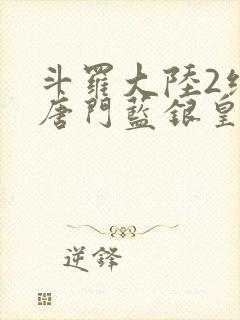 斗羅大陸2
唐門藍銀皇
逆鋒